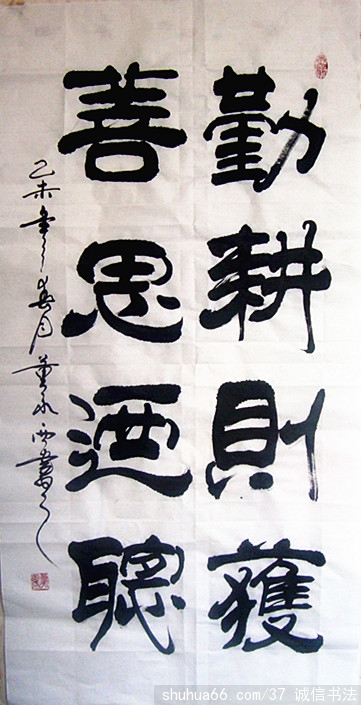 勤耕則獲
善思迺聰
乙未年之春月董永書
shuhua66.com/37 诚信书法